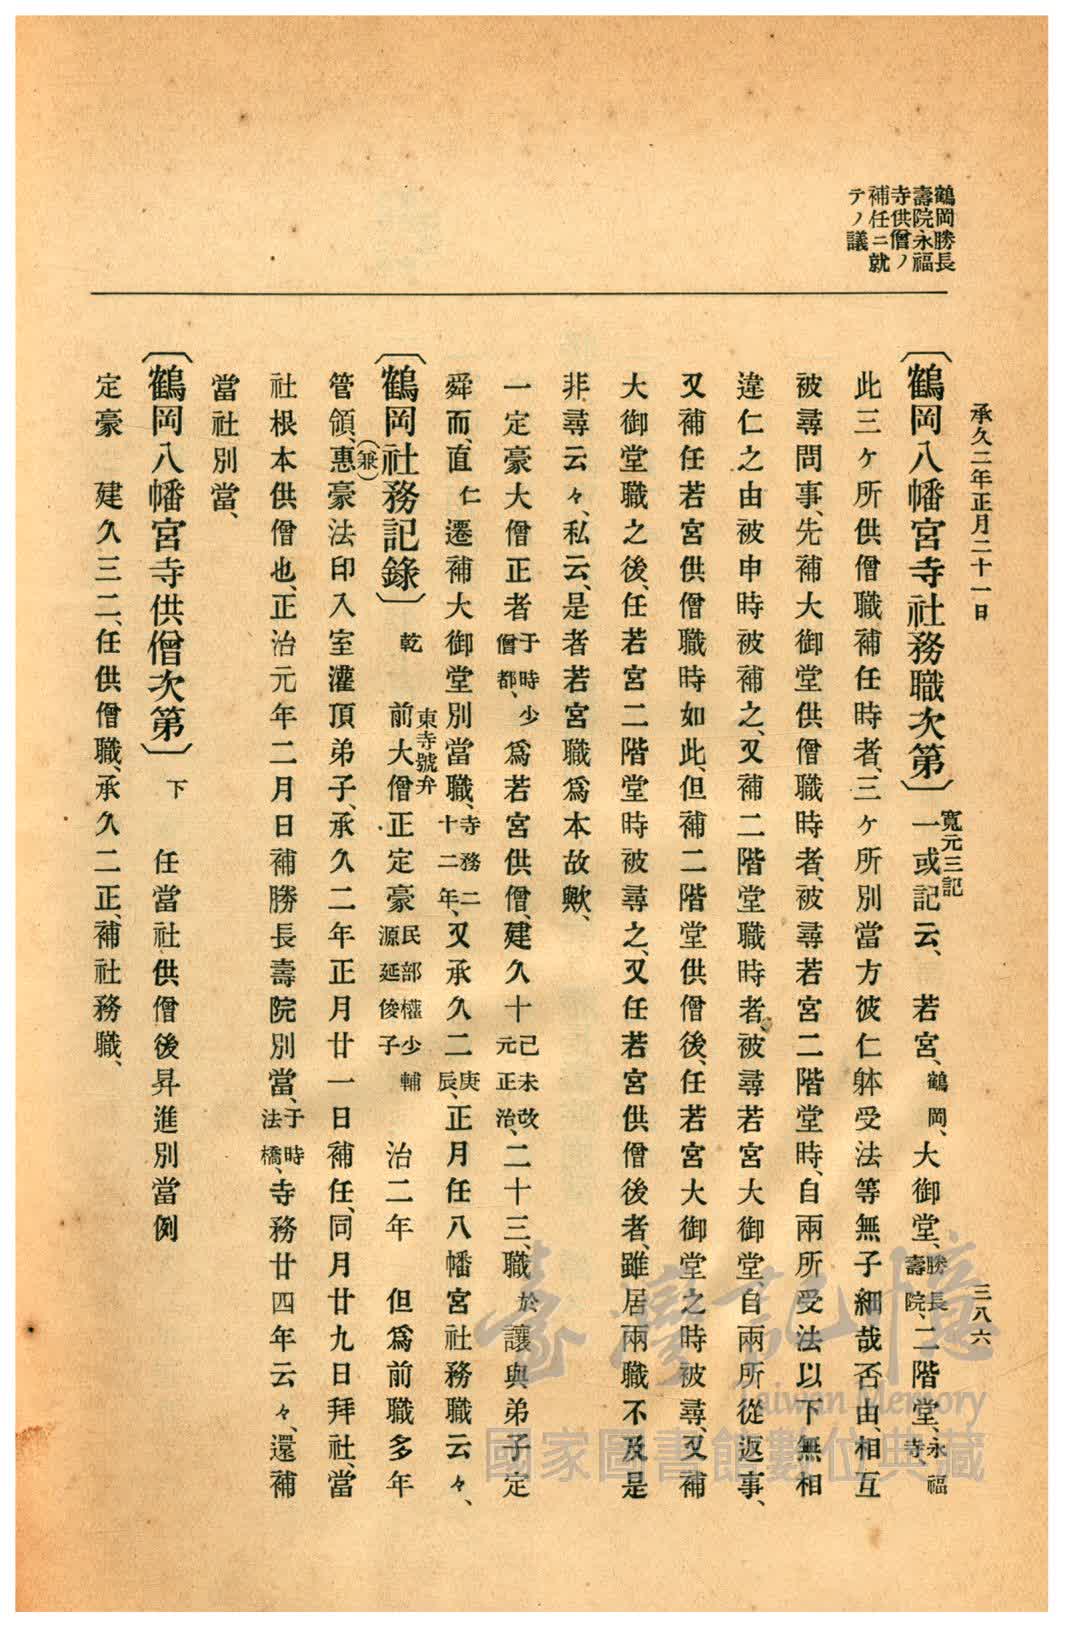 承久二年正月二十一日
三八六
鶴岡勝長
壽院永福
寺供僧ノ
補任ニ就
テノ議
〔鶴岡八幡宮寺社務職次第〕寬元三記一或記云、若宮、鶴岡、大御堂、勝長壽院、二階堂、永福寺、
此三ヶ所供僧職補任時者、三ヶ所別當方彼仁躰受法等無子細哉否由、相互
被尋問事、先補大御堂供僧職時者、被尋若宮二階堂時、自兩所受法以下無相
違仁之由被申時被補之、又補二階堂職時者被尋若宮大御堂、自兩所從返事、
又補任若宮供僧職時如此、但補二階堂供僧後、任若宮大御堂之時被尋、又補
大御堂職之後、任若宮二階堂時被尋之、又任若宮供僧後者、雖居兩職不及是
非尋云々、私云、是者若宮職爲本故歟、
一定豪大僧正者于時少僧都、爲若宮供僧、建久十己未改元正治、二十三、職於讓與弟子定
舜而、直仁遷補大御堂別當職、寺務二十二年、又承久二庚辰、正月任八幡宮社務職云々、
〔鶴岡社務記錄〕乾 東寺號弁前大僧正定豪民部權少輔源延俊子 治二年 但爲前職多年
(兼)
管領、惠豪法印入室灌頂弟子、承久二年正月廿一日補任、同月廿九日拜社、當
社根本供僧也、正治元年二月日補勝長壽院別當、于時法橋、寺務廿四年云々、還補
當社別當、
〔鶴岡八幡宮寺供僧次第〕下 任當社供僧後昇進別當例
定豪 建久三二、任供僧職、承久二正、補社務職、
臺灣記憶
Taiwan Memory
國家圖書館數位典藏